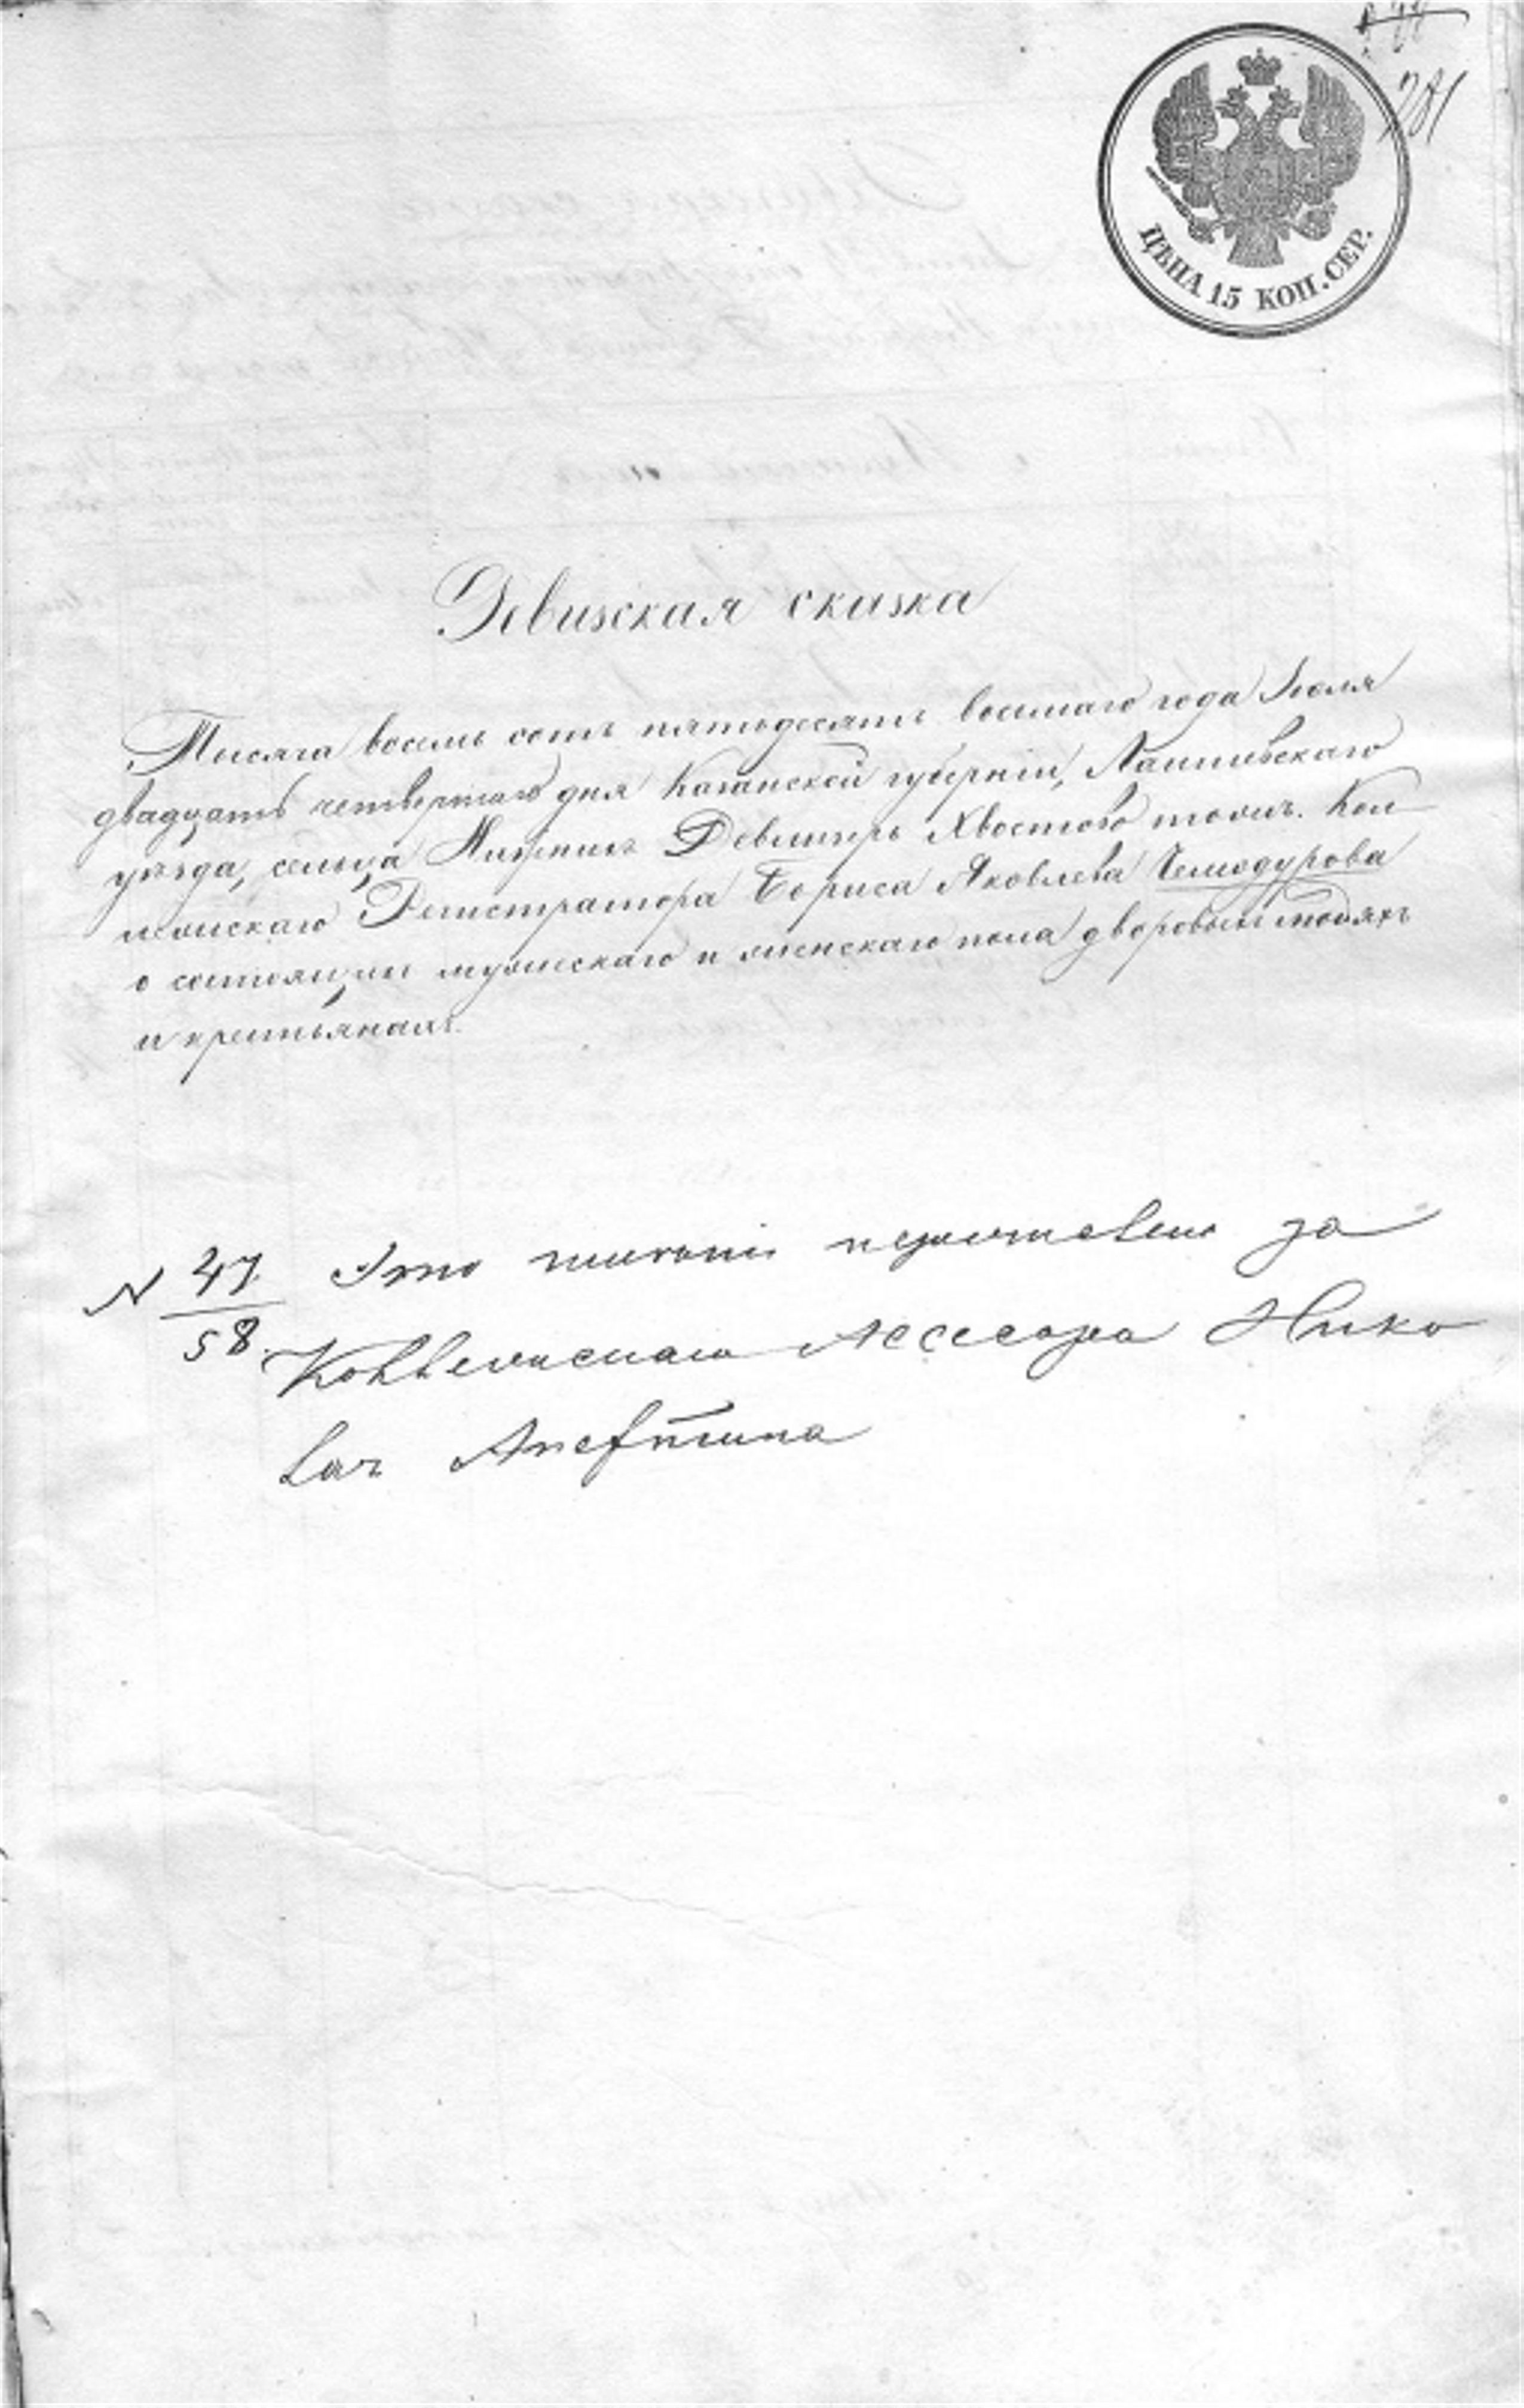 281
ЦѢНА 15 КОП. СЕР.
Ревизская сказка
Тысяча восемь сотъ пятьдесятъ восьмаго года Іюля
двадцать четвертаго дня Казанской губерніи, Лаишевскаго
уѣзда, сельца Девликѣръ Хвостово тожъ. Кол
лежскаго Регистратора Бориса Яковлева Чемодурова
о состоящихъ мужескаго и женскаго пола дворовыхъ людяхъ
и крестьянахъ.
N 47 Это имѣніе за
58. Коллежскаго Ассесора Нико
лая